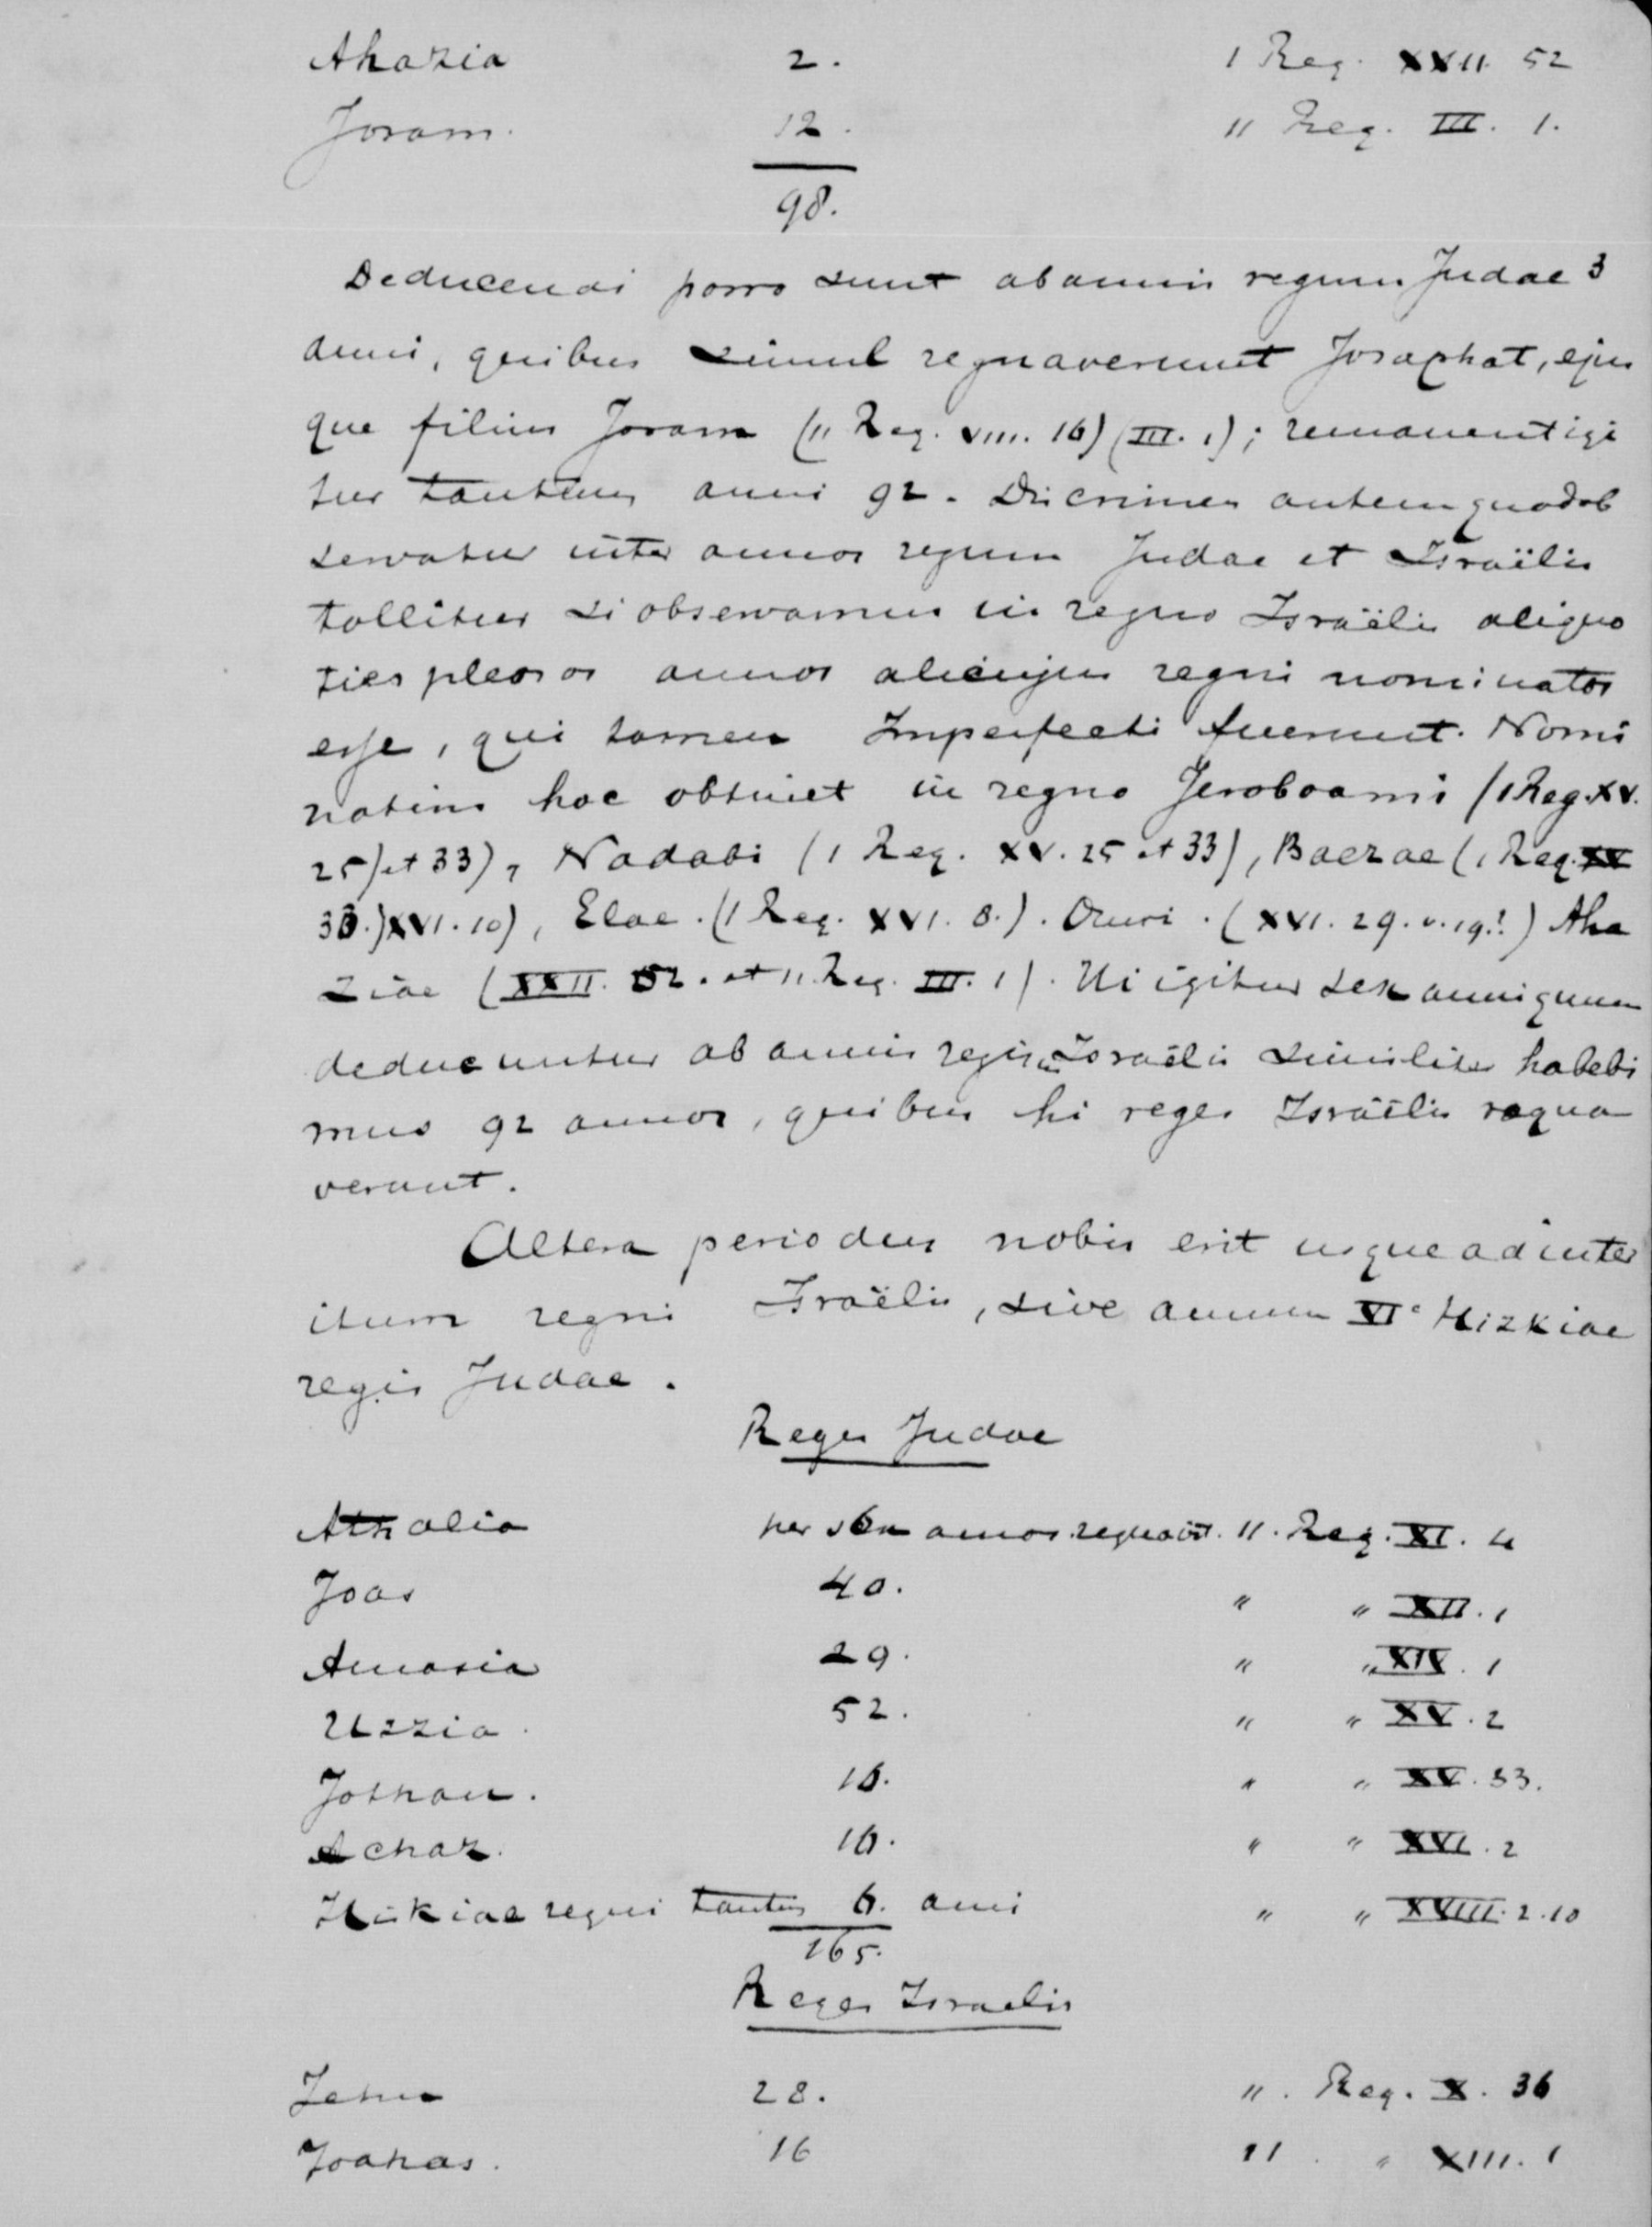 Ahazia 2. I Reg. XXII. 52
Joram. 12. II Reg. III. 1.
98.
Deducendi porro sunt ab annis regum Judae 3
anni, quibus simul regnaverunt Josaphat, ejus
que filius Joram (II Reg. VIII. 16) (III. 1); remanent igi
tur tantum anni 92. Discrimen autem quod ob
servatur inter annos regum Judae et Israëlis
tollitur si observamus in regno Israëlis aliquo
ties plenos annos alicujus regni nominatos
esse, qui tamen Imperfecti fuerunt. Nomi
natim hoc obtinet in regno Jeroboami (I Reg. XV.
25) et 33), Nadabi (I Reg. XV. 25 et 33), Baezae (I Reg. XV
33.) XVI. 10), Elae. (I Reg. XVI. 8.). Omri. (XVI. 29. v. 19?) Aha
ziae (XXII. 52. et II. Reg. III. 1). Ni igitur sex anni quum
deducuntur ab annis regum Israëlis similiter habebi
mus 92 annos, quibus hi reges Israëlis regna
verunt.
Altera periodus nobis erit usque ad inter
itum regni Israëlis, sive annum VI° Hizkiae
regis Judae.
Reges Judae
Athalia per sex annos regnavit. II. Reg. XI. 4
Joas 40. " " XII. 1
Amasia 29. " " XIV. 1
Uzzia. 52. " " XV. 2
Jothan. 16. " " XV. 33.
Achaz. 16. " " XVI. 2
Hiskiae regni tantum 6. anni " " XVIII. 2. 10
165.
Reges Israelis
Jehu 28. II. Reg. X. 36
Joahas. 16 II. " XIII. 1